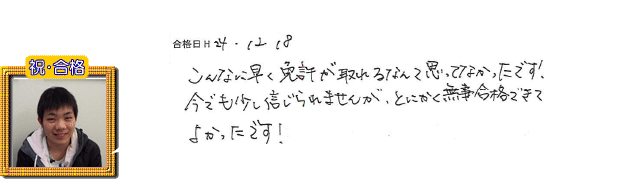 祝・合格
合格日H 24・12・18
こんなに早く免許が取れるなんて思ってなかったです!
今でも少し信じられませんが、とにかく無事合格できて
よかったです!